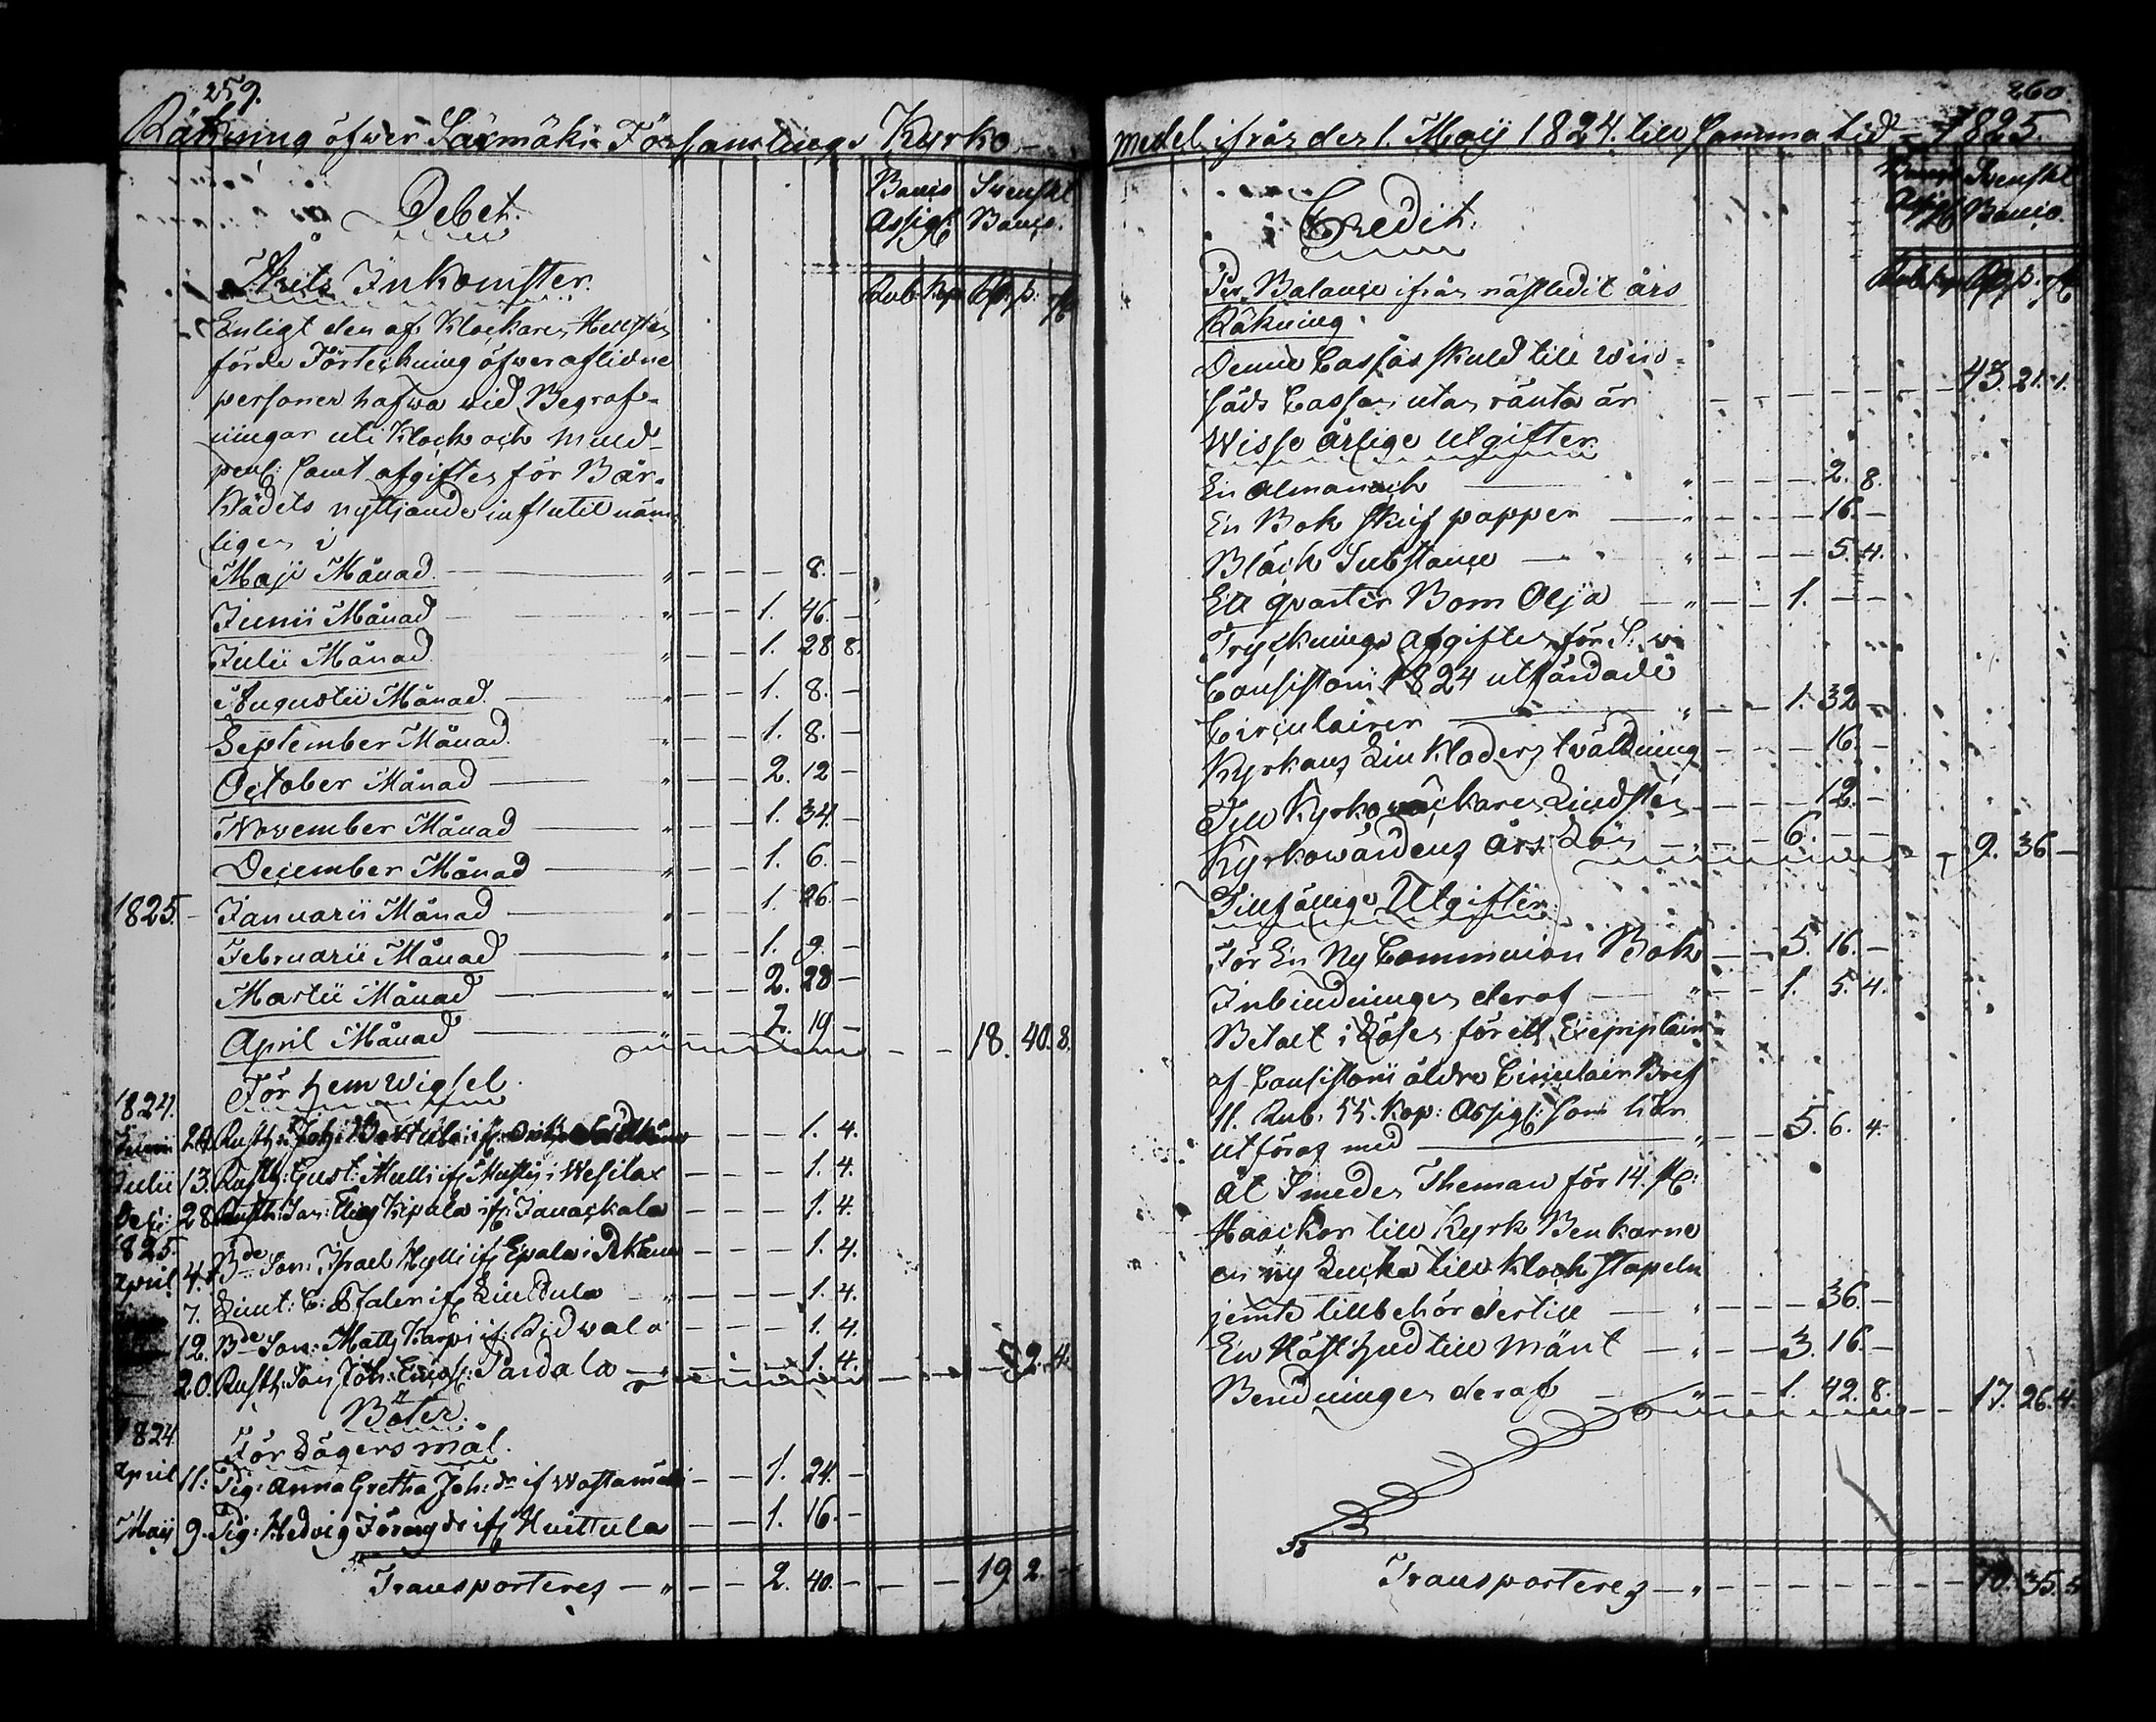 259.
Räkning öfwer Säxmäki Församlings Kyrko
Debet.
Banco Svenskt
Assig: Banco.
Årets Inkomster.
Rub. Kop. Rd. s: rst
Enligt den af Klockaren Hellsten
förde Förteckning öfwer aflidne
personer hafwa wid Begraf-
ningar uti Klock och Mull-
peng: samt afgiften för Bår-
klädets nyttjande influtit näm-
ligen i
Maji Månad. " — — — 8. —
Junii Månad " — — 1. 46. —
Julii Månad " — — 1. 28 8.
Augustii Månad. " — — 1. 8. —
September Månad. " — — 1. 8. —
October Månad " — — 2. 12 —
November Månad " — — 1. 34. —
December Månad " — — 1. 6. —
1825. Januarii Månad " — — 1. 26. —
Februarii Månad " — — 1. 9. —
Martii Månad " — — 2. 28 —
April Månad " — — 2. 19 — — — 18. 40. 8.
För hem wigsel.
1824.
Junii 24 Rusth: Joh: — — — 1. 4.
Julii 13. Rusth: Gust: Mulli if Wesilax — — — 1. 4.
28 Rusth: Son: Elias if Janackala — — — 1. 4.
1825.
April 4. Bde Son: Israel Hylli if Epala i — — — 1. 4.
7. C: if Lindula — — — 1. 4.
12. Bde Son: Matts if: Ridwala — — — 1. 4.
20. Rusth: Son Joh: Pardala — — — 1. 4. — — 9. 4.
Böter.
1824 För Lägersmål.
April 11: Pig: Anna Gretha Joh: dr if — — 1. 24. —
Maij 9. Pig: Hedvig if Huittula — — 1. 16. —
Transporteres — " — — 2. 40. — — — 19. 2. —
260
medel ifrån den 1. Maij 1824. till samma tid 1825.
Credit.
Banco Svenskt
Assig: Banco.
Rub. kop. Rd. s: rst
Per Balance ifrån nästledit års
Räkning.
Denne Cassas skuld till Wiin-
säds Cassan utan ränta är — — — 43. 21. 1.
Wisse årlige Utgifter.
En Almanach " — — — 2. 8.
En Bok skrif papper " — — — 16. —
Bläck Substance " — — — 5. 4.
Ett qvarter Bom Olja " — — 1. — —
Trycknings Afgiften för
Consistorii 1824 utfärdade
Circulairer " — — 1. 32 —
Kyrkans Linkläders twättning — — — 16. —
Till Kyrkowäckaren Lindsten — — — 12. —
Kyrkowärdens års Lön — — 6. — — — 9. 36. —
Tillfällige Utgifter.
För En Ny Communion Bok — — 5. 16. —
Inbindningen deraf " — — 1. 5. 4.
Betalt i Lösen för ett Exemplair
af Consistorii äldre Circulair Bref
11. Rub. 55. Kop: Assig: som här
utföres med " — — 5. 6. 4.
Åt Smeden Theman för 14. st:
Haackor till Kyrk Benkarne
en ny Lucka till Klockstapeln
jemte tillbehör dertill " — — — 36. —
En Hästhud till Mänt " — — 3. 16. —
Beredningen deraf " — — 1. 42. 8. — — 17. 26. 4.
Transporteres — " — — — — — — — 70. 35. 5